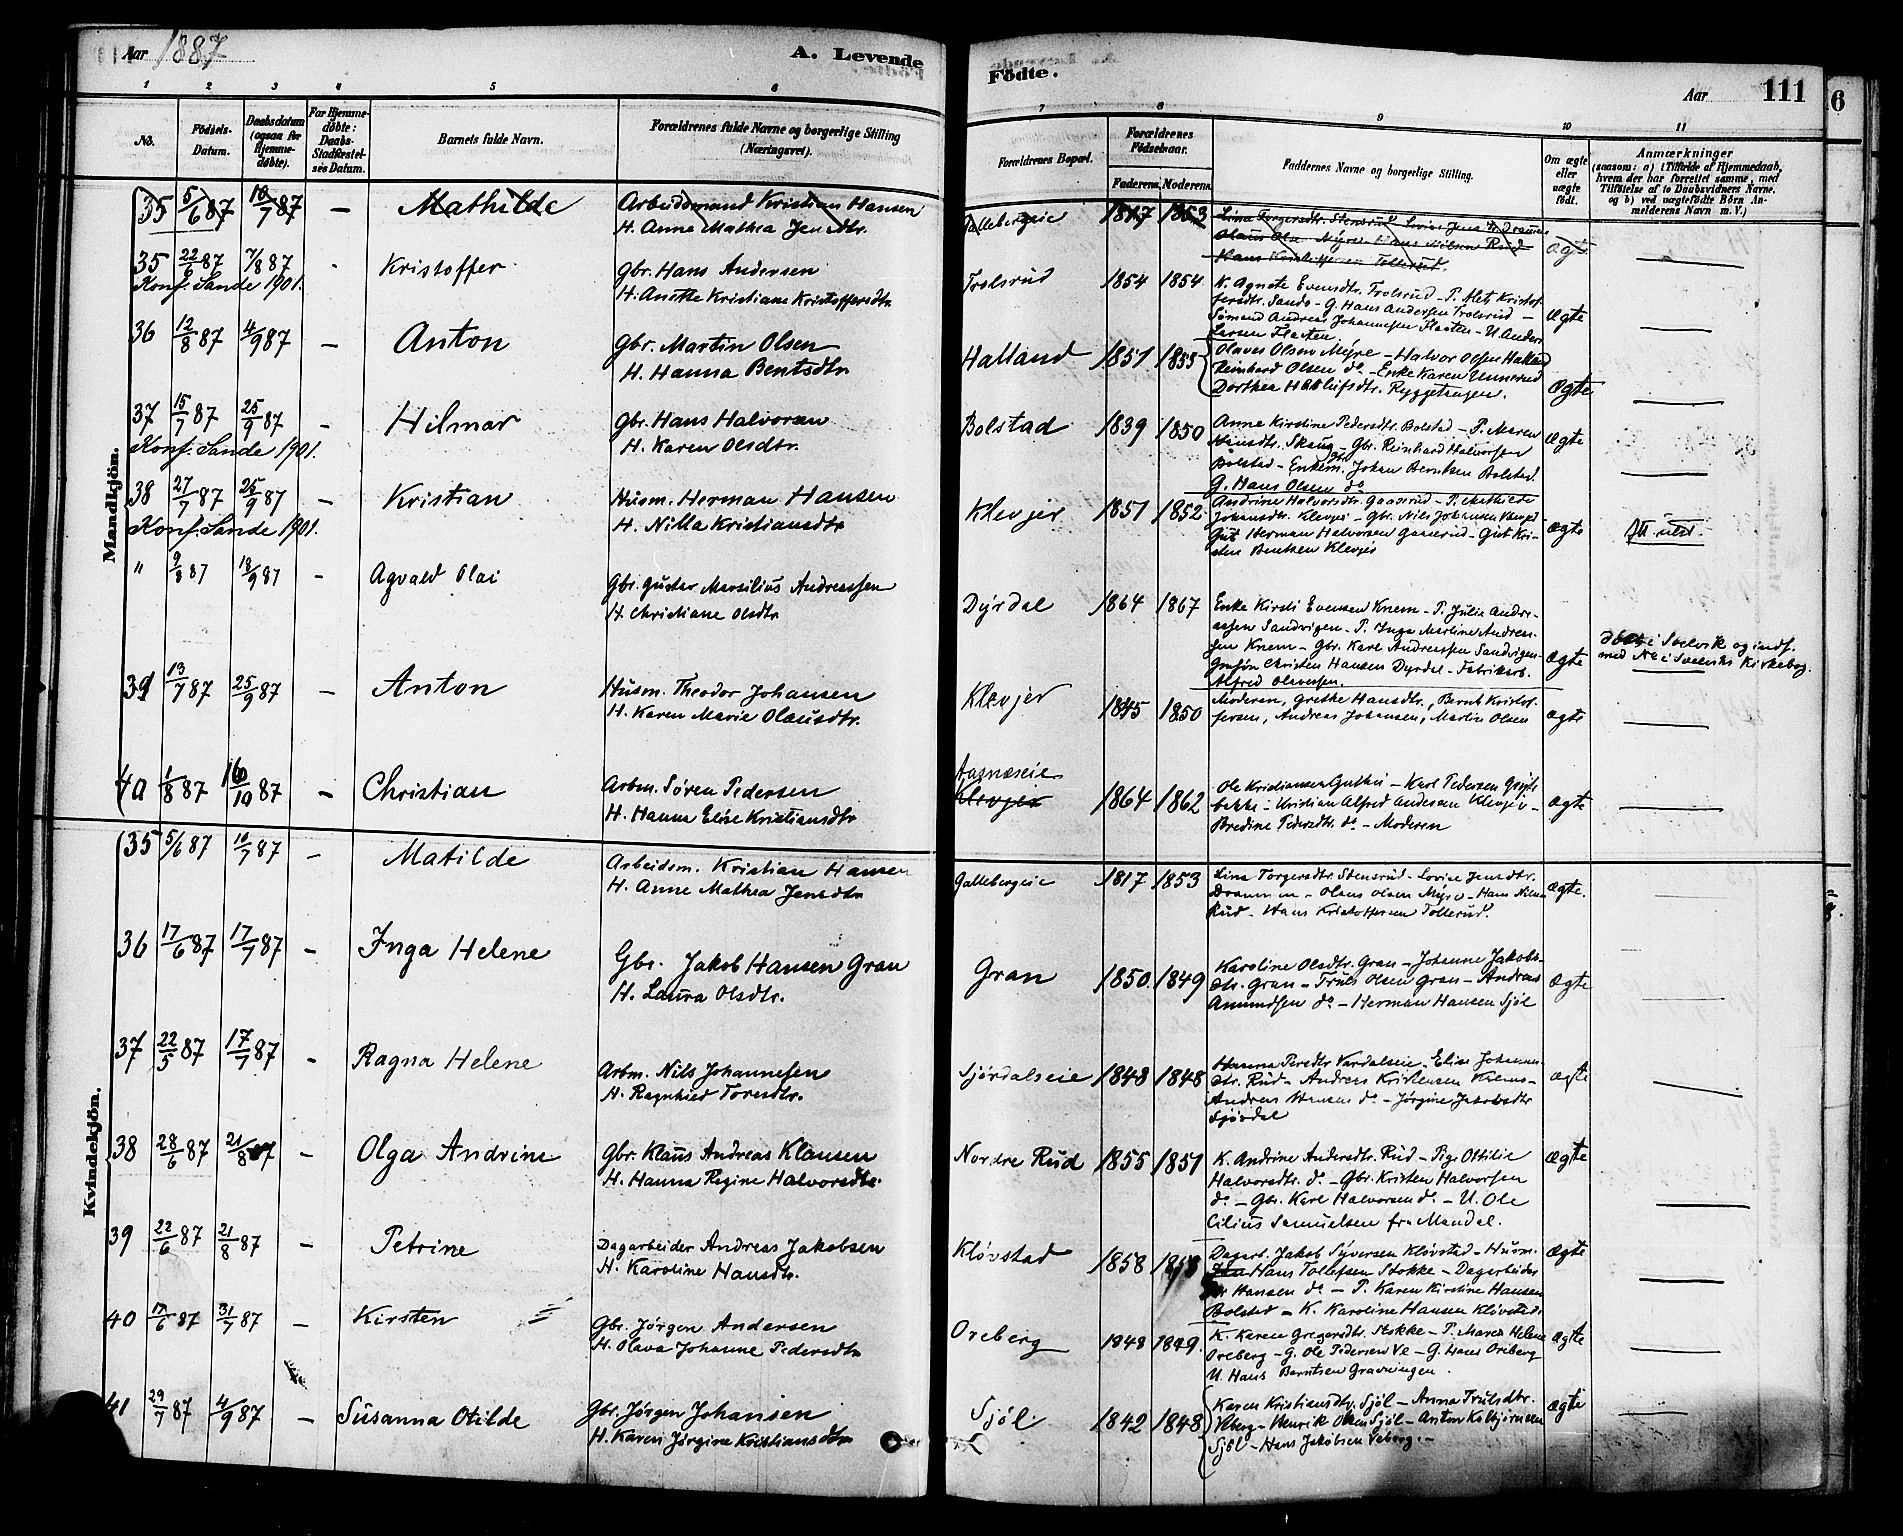 Aar 1887
A. Levende
Födte.
Aar
111
6
1 2 3 4 5 6 7 8 9 10 11
No.
Födsels-Datum.
Daabsdatum (ogsaa for Hjemmedøbte).
For Hjemmedøbte: Daabs-Stadfæstelses Datum.
Barnets fulde Navn.
Forældrenes fulde Navne og borgerlige Stilling (Næringsvei).
Forældrenes Bopæl.
Forældrenes Födselsaar.
Faderens. Moderens.
Faddernes Navne og borgerlige Stilling.
Om ægte eller uægte födt.
Anmærkninger
(saasom: a) i Tilfælde af Hjemmedaab, hvem der har forrettet samme, med Tilföielse af to Daabsvidners Navne, og b) ved uægtefödte Börn Anmelderens Navn m. V.)
Mandkjön.
35 5/6 87 10/7 87 – Mathilde Arbeidsmand Kristian Hansen
H. Anne Mathea Jensdtr.
Gallebergeie 1817 1853 Lina Torgersdtr. Stensrud Lovise Jensdtr Drammen
Olaus Ols. Myre – Hans Nilsen Rud
Hans Kristoffersen Tollerud.
ægte
35 22/6 87 7/8 87 - Kristoffer Gbr. Hans Andersen
Konf. Sande 1901.
H. Anette Kristiane Kristoffersdtr.
Trolsrud 1854 1854 K. Agnete Evensdtr. Trolsrud – P. Alet Kristof-
fersdtr. Sando – G. Hans Andersen Trolsrud –
Sömand Andreas Johannesen Flaaten – U. Anders
Larsen Flaaten
ægte
36 12/8 87 4/9 87 – Anton Gbr. Martin Olsen
H. Hanna Bentsdtr
Halland 1851 1855 Olaves Olsen Myre – Halvor Olsen Halland
Reinhard Olsen do – Enke Karen Unnerud
Dorthea Ryggetangen.
ægte
37 15/7 87 25/9 87 - Hilmar Gbr. Hans Halvorsen
Konf. Sande 1901.
H. Karen Olsdtr.
Bolstad 1839 1850 Anna Kirstine Pedersdtr. Bolstad – P. Maren
Hansdtr. Skaug – Gbr. Reinhard Halvorsen
Bolstad – Enkem. Johan Berntsen Bolstad.
G. Hans Olsen do
ægte
38 27/7 87 25/9 87 – Kristian Husm. Herman Hansen
Konf. Sande 1901.
H. Nilla Kristiansdtr
Klevjer 1851 1852 Andrine Halvorsdtr. Gaaserud – P. Mathilde
Johansdtr. Klevjer – Gbr. Nils Johansen Klevjer
Gut Herman Halvorsen Gaaserud – Gut Kri-
sten Bentsen Klevjer
ægte
Att. udst.
" 9/8 87 18/9 87 – Agvald Olai Gbr. Gustav Marsilius Andreassen
H. Christiane Olsdtr
Dyrdal 1864 1867 Enke Kirsti Evensen Knem – P. Julie Andre-
assen Sandvigen – P. Inga Martine Andreas-
sen Knem – Gbr. Karl Andreassen Sandvigen –
Christen Hansen Dyrdal – Fabrikarb.
Alfred Olavesen.
ægte
döbt i Svelvik og indf.
med No i Svelviks Kirkebog.
39 13/7 87 25/9 87 – Anton Husm. Theodor Johansen
H. Karen Marie Olausdtr.
Klevjer 1845 1850 Moderen, Grethe Hansdtr., Bernt Kristof-
fersen, Andreas Johansen, Martin Olsen
ægte
40 1/8 87 16/10 87 – Christian Arbm. Søren Pedersen
H. Hanna Elise Kristiansdtr
Aasnæseie
Klevjer 1864 1862 Ole Kristiansen – Karl Pedersen
bakke – Kristian Alfred Andersen Klevjer –
Bredine Pedersdtr. do – Moderen
ægte
Kvindekjön.
35 5/6 87 10/7 87 – Matilde Arbeidsm. Kristian Hansen
H. Anne Mathea Jensdtr
Gallebergeie 1817 1853 Lina Torgersdtr. Stensrud – Lovise Jensdtr.
Drammen – Olaus Olsen Myre – Hans Nilsen
Rud – Hans Kristoffersen Tollerud.
ægte.
36 17/6 87 17/7 87 – Inga Helene Gbr. Jakob Hansen Gran
H. Laura Olsdtr.
Gran 1850. 1849 Karoline Olsdtr. Gran – Johanne Jakobs-
dtr. Gran – Truls Olsen Gran – Andreas
Amundsen do – Herman Hansen Sjöl
ægte
37 22/5 87 17/7 87 – Ragna Helene Arbm. Nils Johannesen
H. Ragnhild Toresdtr.
Sjördalseie 1848 1848 Hanna Persdtr Vardalseie, Elise Johannes-
dtr. Rud – Andreas Kristensen Krems –
Andreas Hansen do – Jørgine Jakobsdtr
Sjördal
ægte
38 28/6 87 21/8 87 – Olga Andrine Gbr. Klaus Andreas Klausen
H. Hanna Regine Halvorsdtr.
Nordre Rud 1855 1851 K. Andrine Andersdtr. Rud – Pige Ottilie
Halvorsdtr. do – Gbr. Kristen Halvorsen
do – Gbr. Karl Halvorsen do – U. Ole
Cilius Samuelsen fra Mandal.
ægte
39 22/6 87 21/8 87 – Petrine Dagarbeider Andreas Jakobsen
H. Karoline Hansdtr.
Kløvstad 1858 1858 Dagarb. Jakob Syversen Kløvstad – Husm.
Hans Tollefsen Stokke – Dagarbeider
Hansen do – P. Karen Kirstine Hansen
Bolstad – K. Karoline Hansen Kløvstad.
ægte
40 17/6 87 31/7 87 – Kirsten Gbr. Jørgen Andersen
H. Olava Johanne Pedersdtr
Oreberg 1848 1849. K. Karen Gregersdtr. Stokke – P. Maren Helene
Oreberg – G. Ole Pedersen Ve – G. Hans Oreberg
U. Hans Berntsen Gravningen.
ægte
41 29/7 87 4/9 87 – Susanna Otilde Gbr. Jørgen Johansen
H. Karen Jørgine Kristiansdtr
Sjöl. 1842 1848 Karen Kristiansdtr. Sjöl – Anna Trulsdtr.
Veberg – Henrik Olsen Sjöl – Anton Kolbjörnsen
Sjöl – Hans Jakobsen Veberg. –
ægte